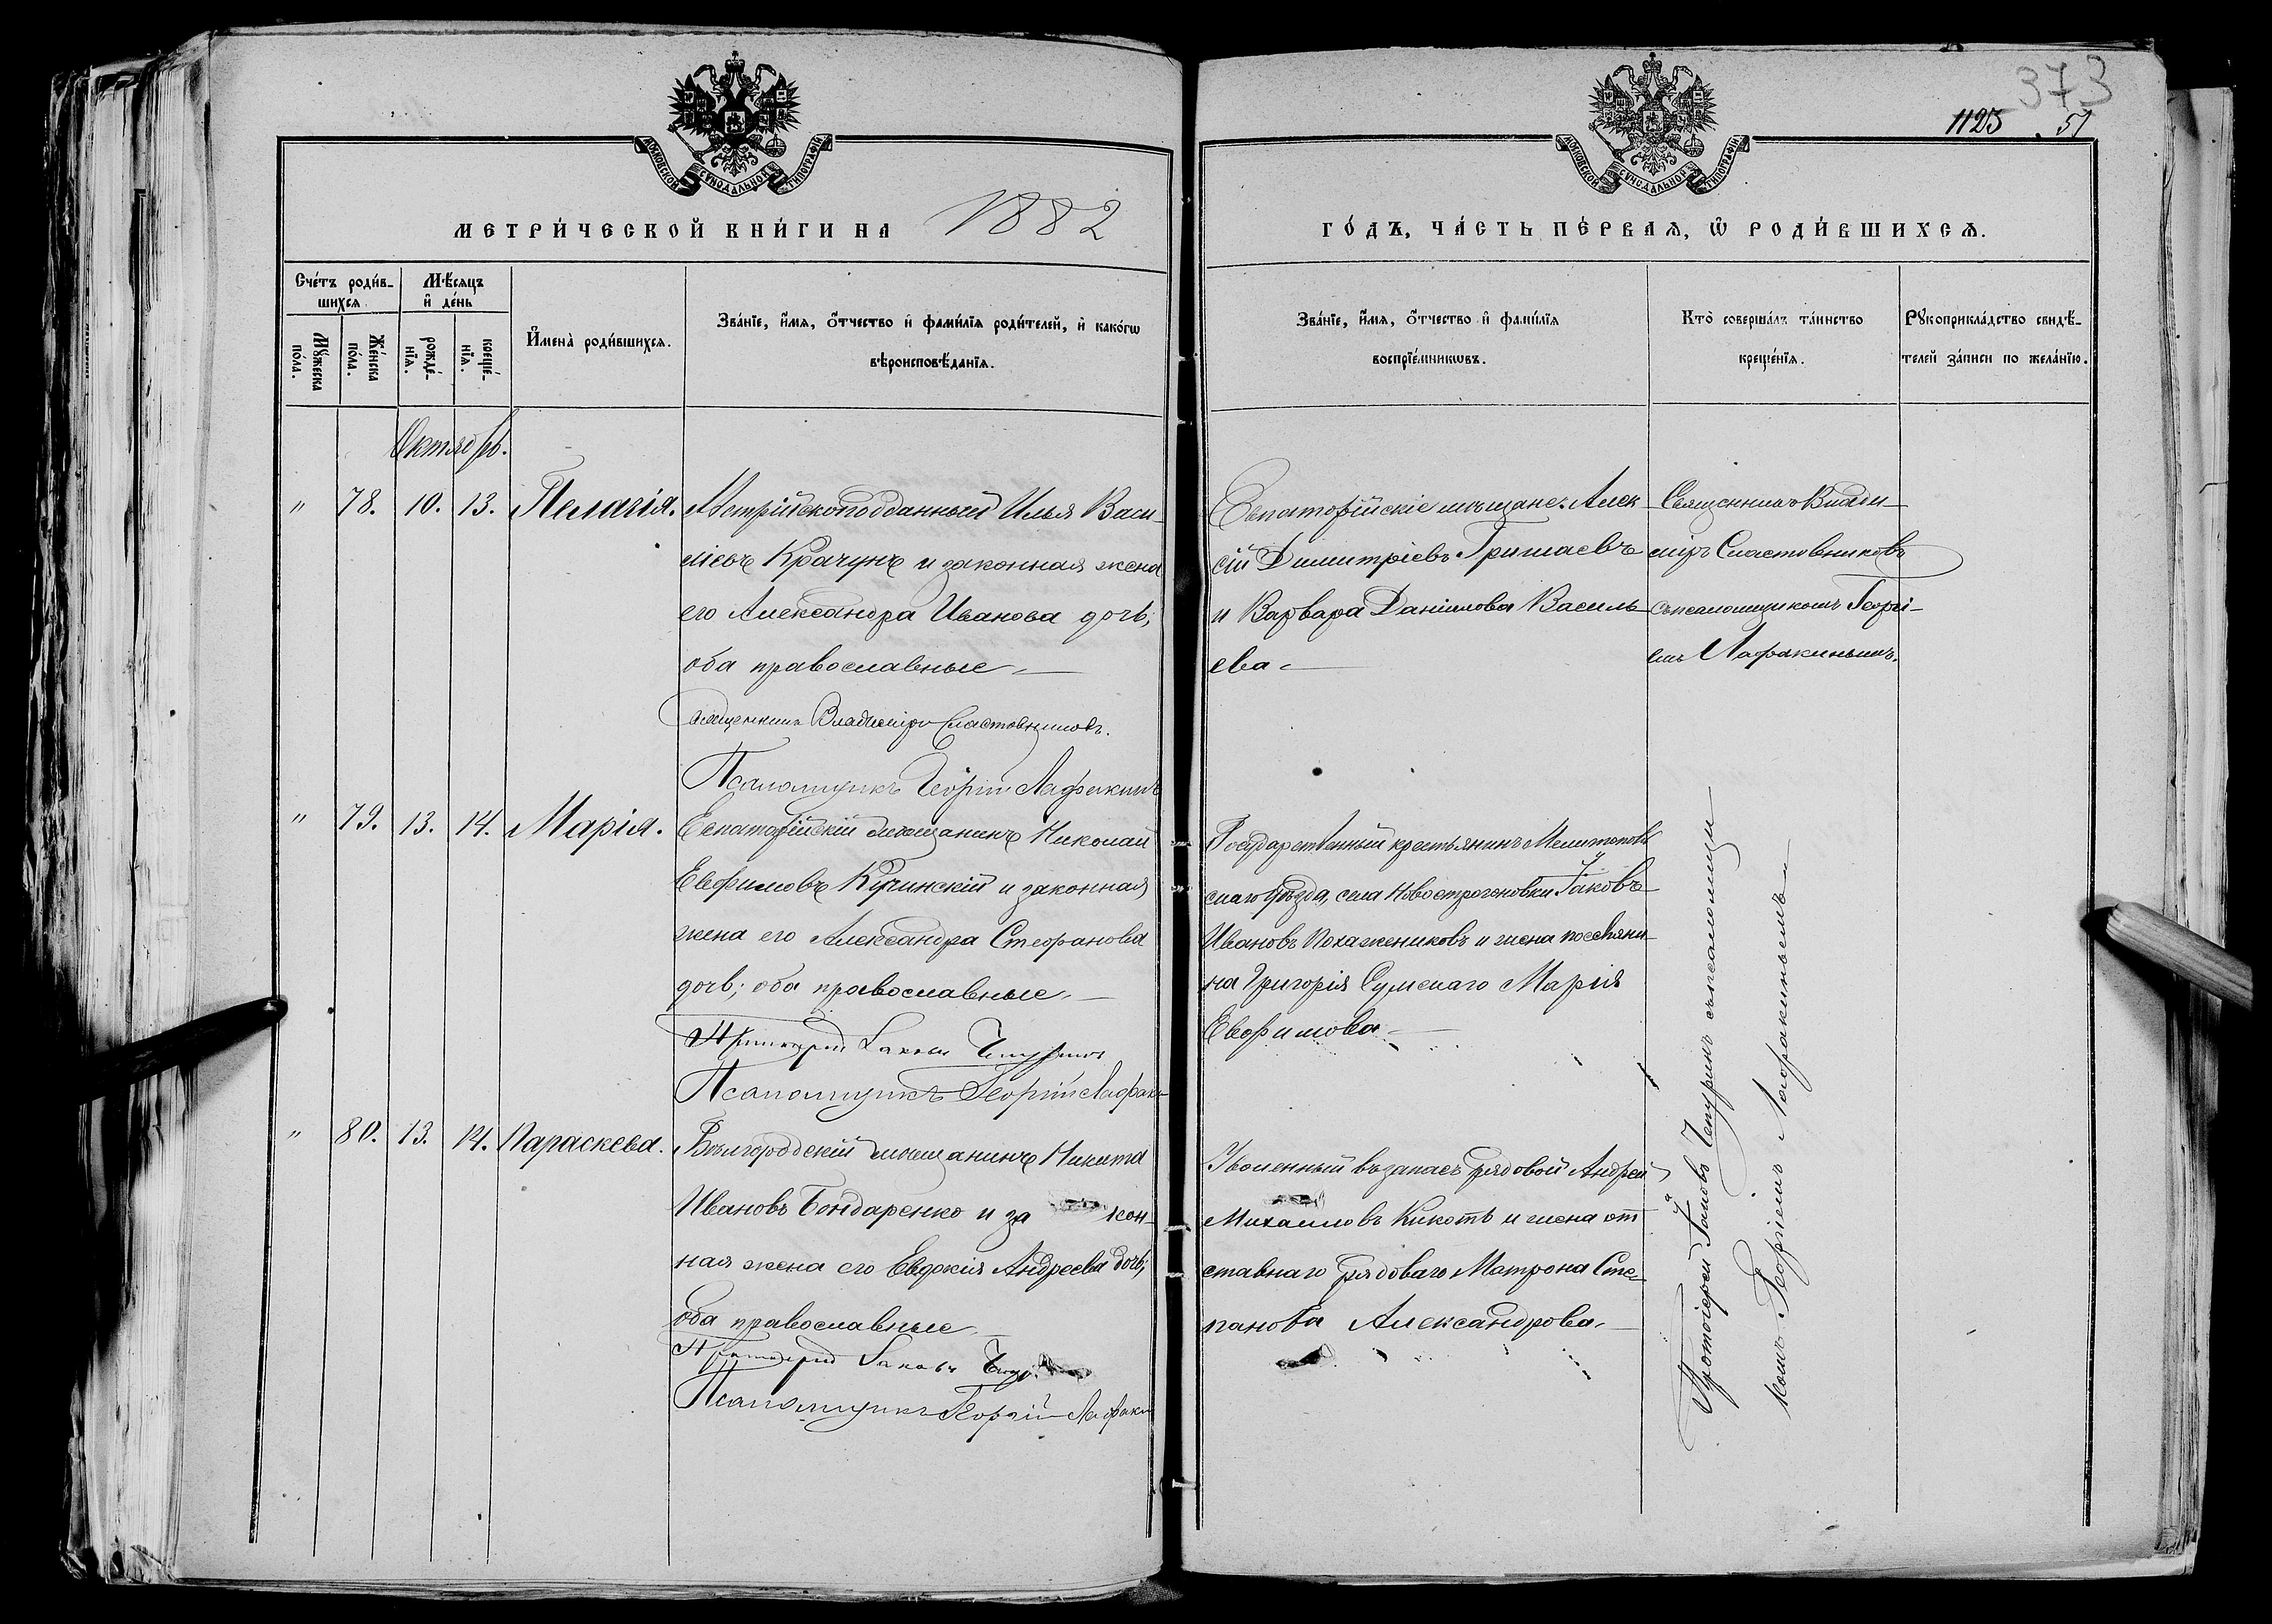 373
1125 . 51
МОСКОВСКОЙ СѴНОДАЛЬНОЙ ТИПОГРАФІИ
МОСКОВСКОЙ СѴНОДАЛЬНОЙ ТИПОГРАФІИ
МЕТРИ́ЧЕСКОЙ КНИ́ГИ НА 1882
ГО́ДЪ, ЧА́СТЬ ПЕ́РВАѦ, Ѡ҆ РОДИ́ВШИХСѦ.
Сче́тъ роди́в-
шихсѧ
Мꙋ́жеска
по́ла.
Же́нска
по́ла.
Мѣ́сѧцъ
и҆ де́нь
рожде́-
нїѧ.
креще́-
нїѧ.
И҆мена̀ роди́вшихсѧ.
Зва́нїе, и҆́мѧ, ѻ҆́тчество и҆ фами́лїѧ роди́телей, и҆ како́гѡ
вѣроисповѣ́данїѧ.
Зва́нїе, и҆́мѧ, ѻ҆́тчество и҆ фами́лїѧ
воспрїе́мникѡвъ.
Кто̀ соверша́лъ та́инство
креще́нїѧ.
Рꙋкоприкла́дство свидѣ́-
телей за́писи по жела́нїю.
Октябрь.
" 78. 10. 13. Пелагія. Австрійскоподданный Илья Васи-
ліевъ Крачунъ и законная жена
его Александра Иванова дочь;
оба православные
Священникъ Владиміръ Сластовниковъ.
Псаломщикъ Георгій Лафакинъ
Евпаторійскіе мѣщане: Алек
сій Димитріевъ Гришаевъ
и Варвара Даніилова Василь
ева
Священникъ Влади-
міръ Сластовниковъ
съ псаломщикомъ Георгі-
емъ Лафакинымъ.
" 79. 13. 14. Марія. Евпаторійскій мѣщанинъ Николай
Евфимовъ Кучинскій и законная
жена его Александра Стефанова
дочь; оба православные
Протоіерей Іаковъ Чепуринъ
Псаломщикъ Георгій Лафаки
Государственный крестьянинъ Мелитополь
скаго уѣзда, села Новострогоновки Іаковъ
Ивановъ и жена поселяни-
на Григорія Сумскаго Марія
Евфимова
" 80. 13. 14. Параскева. Бѣлгородскій мѣщанинъ Никита
Ивановъ Бондаренко и за кон-
ная жена его Евдокія Андреева дочь;
оба православные
Протоіерей Іаковъ Чепур
Псаломщикъ Георгій Лафаки
Уволенный въ запасъ рядовой Андрей
Михаиловъ Кикоть и жена от
ставнаго рядоваго Матрона Сте-
панова Александрова
Протоіерей Іаковъ Чепуринъ съ псаломщи
комъ Георгіемъ Лафакинымъ